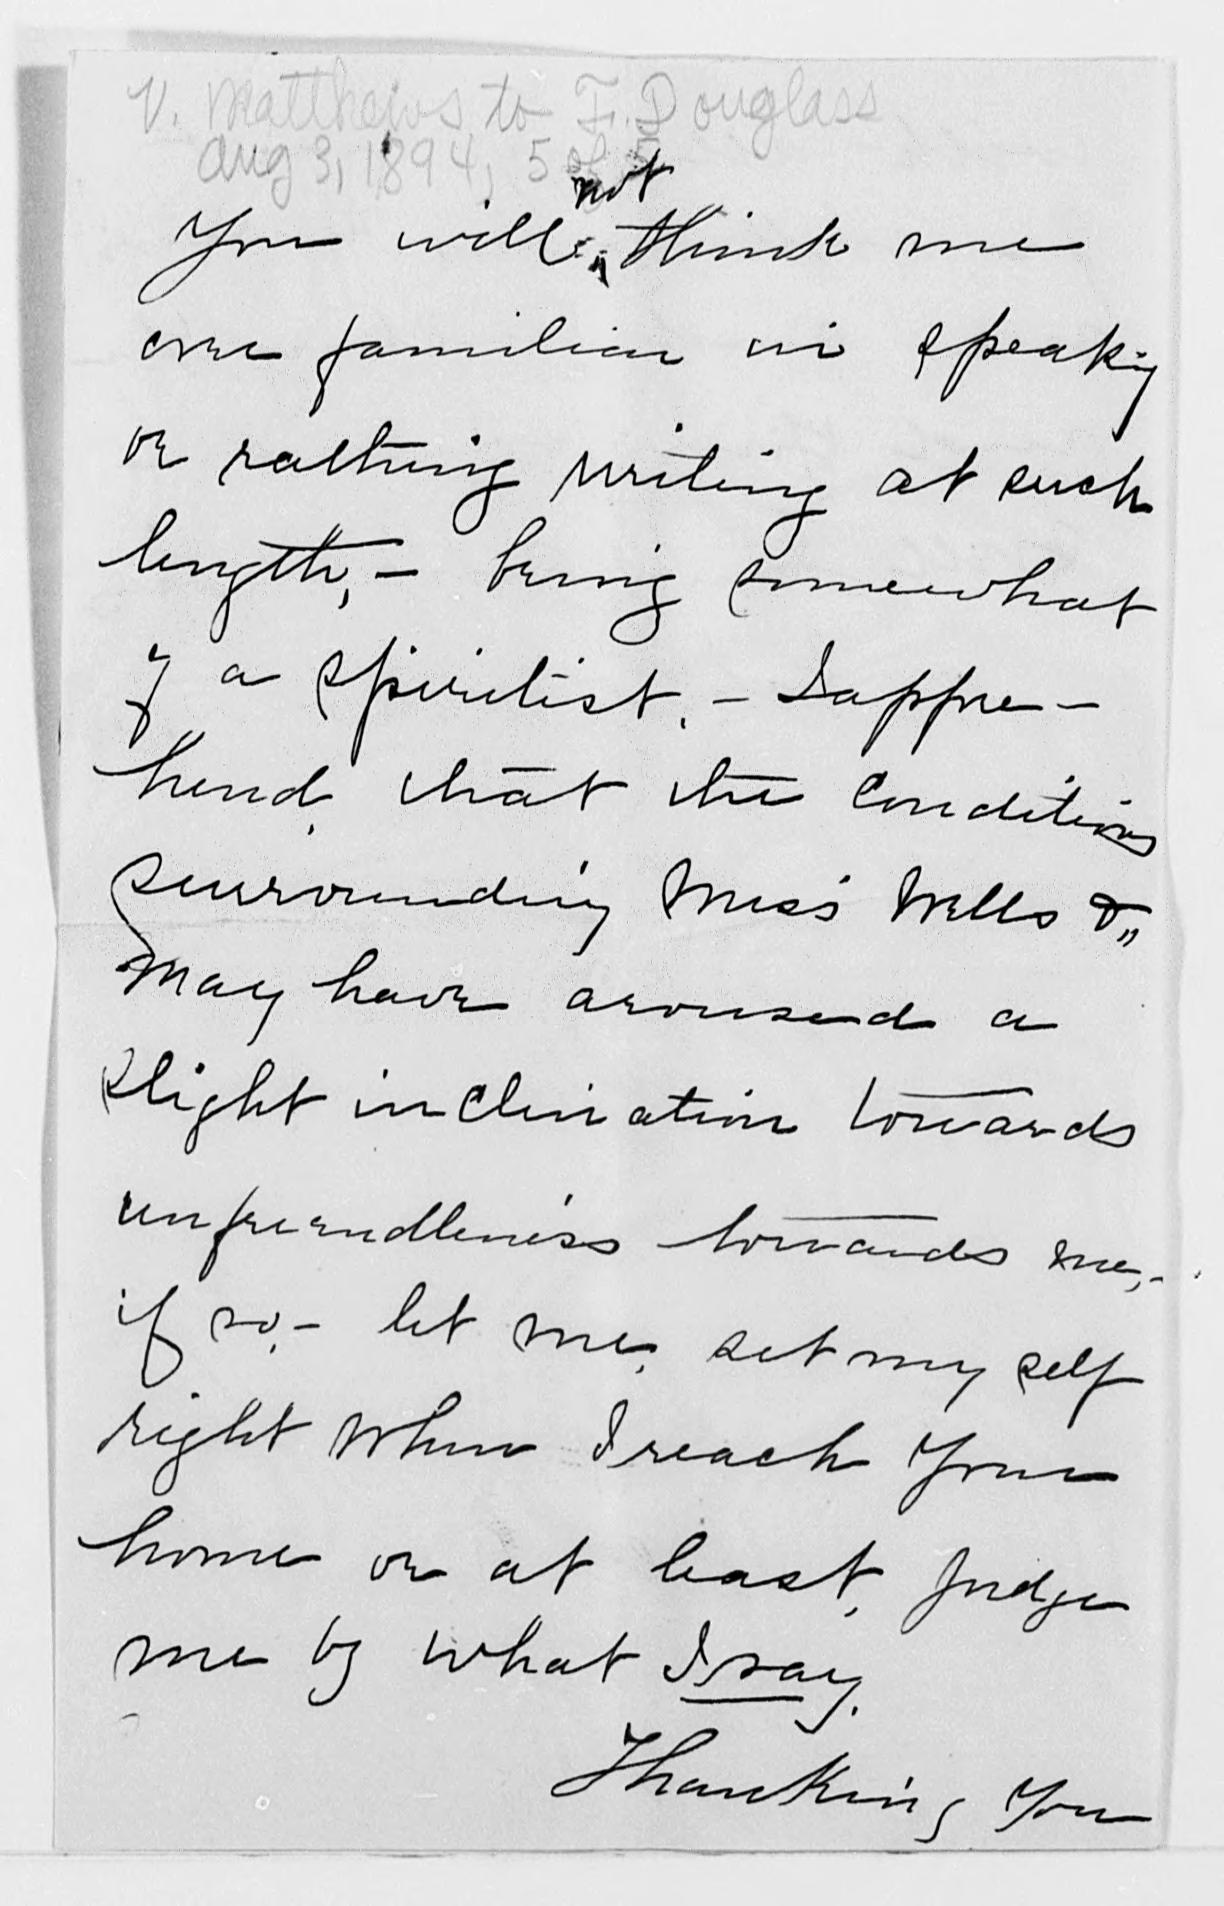 V. Matthews to F. Douglass
Aug 3, 1894, 5 of
not
You will think me
over familiar in speaking
or rathing writing at such
length, – being somewhat
of a spiritist. – I appre-
hend, that the Conditions
surrounding Miss Wells &,,
may have aroused a
slight inclination towards
unfreindleness towards me, -
if so, – let me, set my self
right when I reach Your
home or at least, judge
me by what I say.
Thanking You